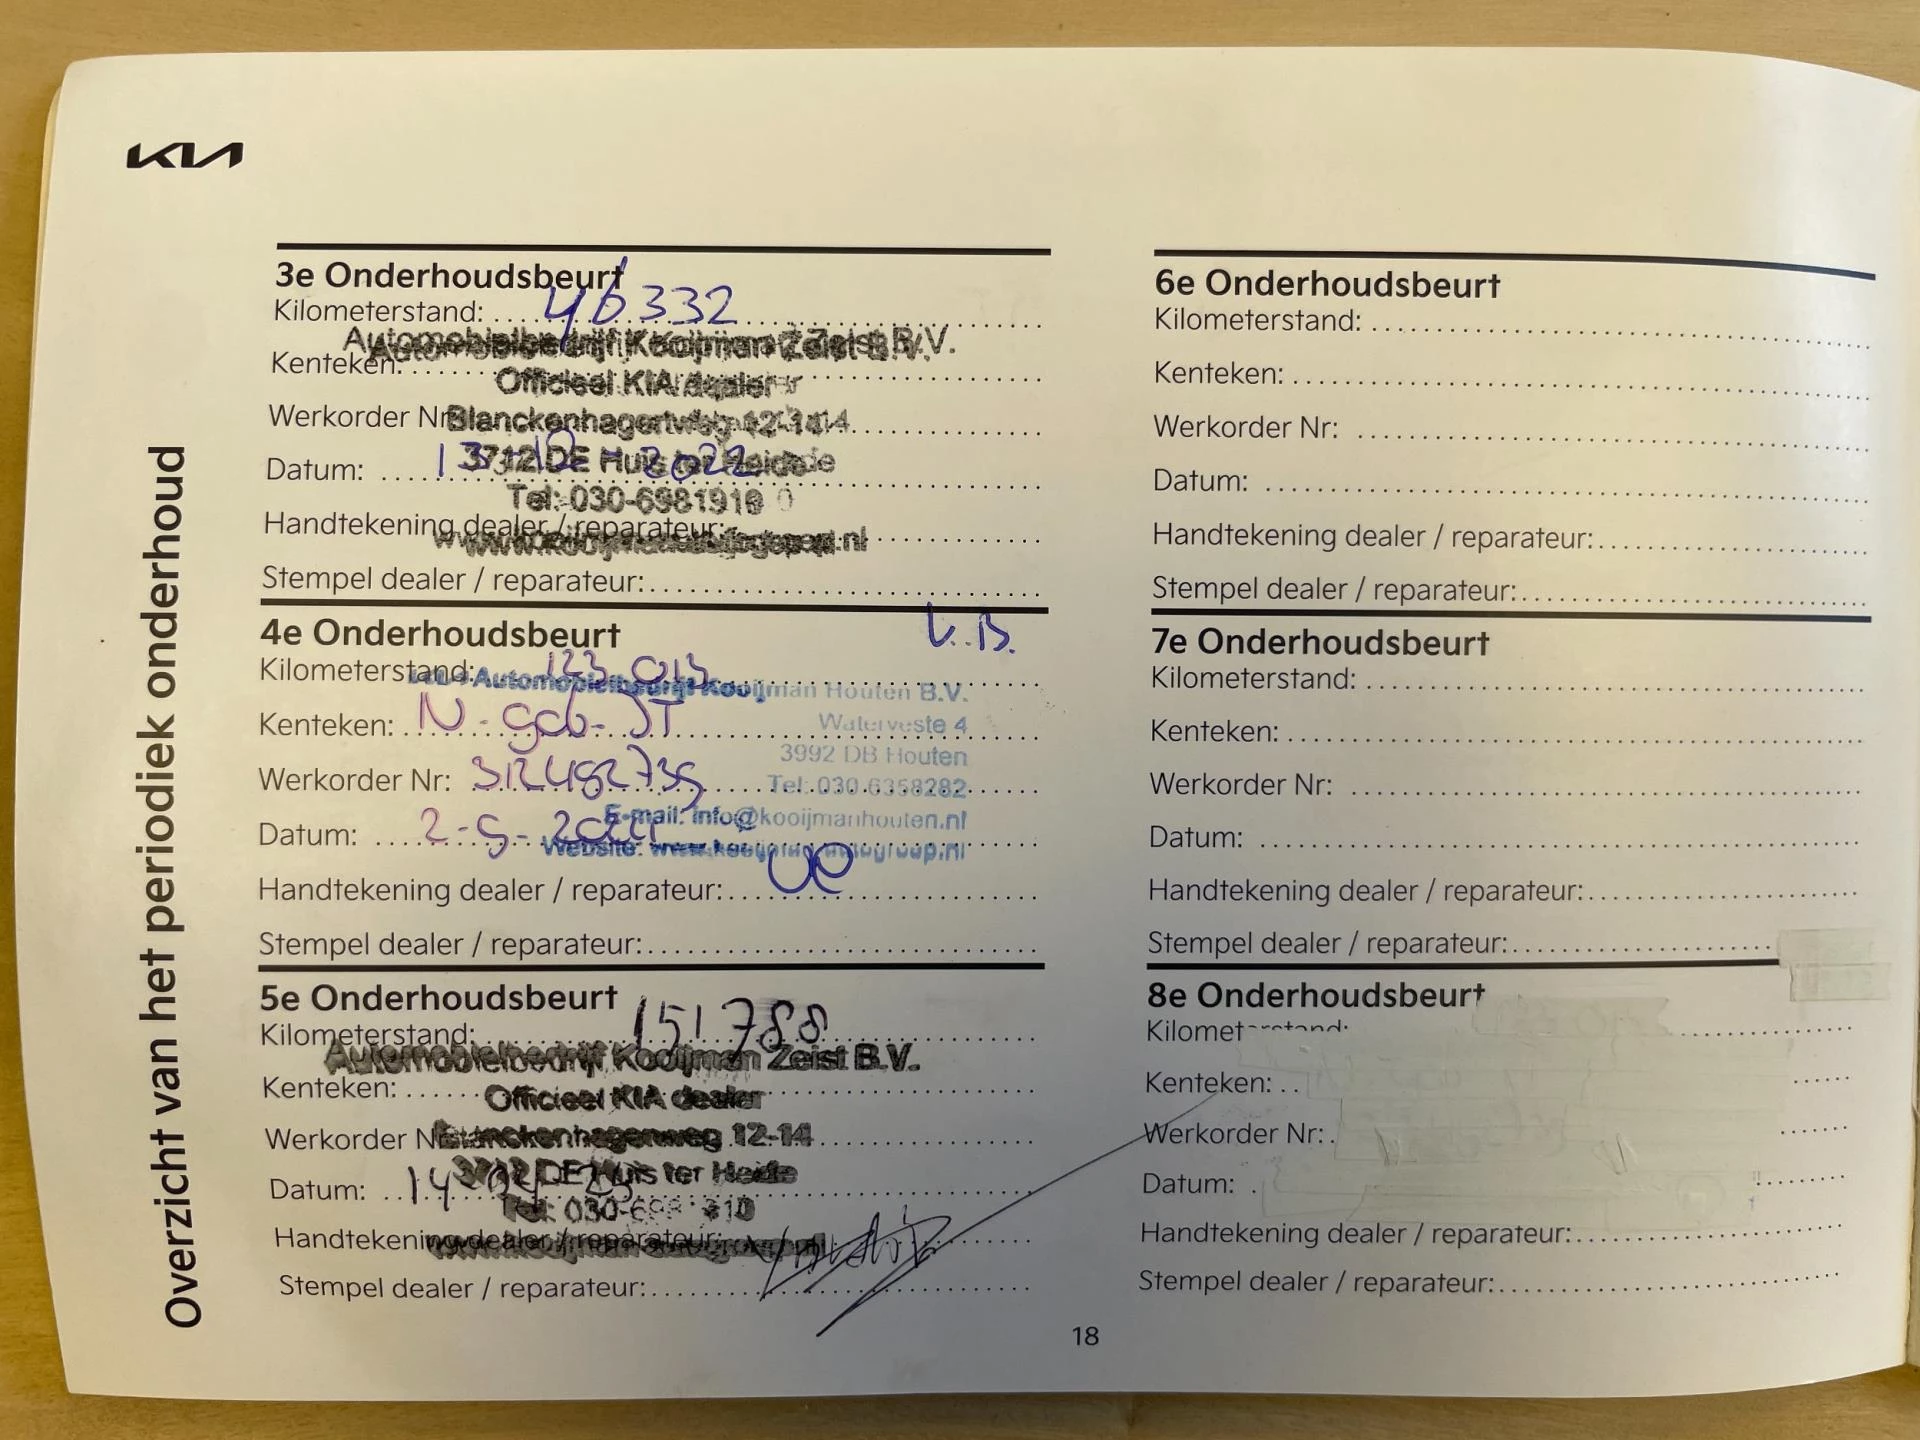 KIA
Overzicht van het periodiek onderhoud
3e Onderhoudsbeurt
Kilometerstand: 46332
Automobielbedrijf Kooijman Zeist B.V.
Kenteken:
Officieel KIA dealer
Werkorder Nr Blanckenhagenweg 12-14
3712 DE Huis ter Heide
Datum: 13-12-2022
Tel: 030-6981910
Handtekening dealer / reparateur:
Stempel dealer / reparateur:
4e Onderhoudsbeurt
Kilometerstand: 123.013
Automobielbedrijf Kooijman Houten B.V.
Waterveste 4
Kenteken:
3992 DB Houten
Werkorder Nr:
Tel: 030-6358282
E-mail: info@kooijmanhouten.nl
Datum:
Website:
Handtekening dealer / reparateur:
Stempel dealer / reparateur:
5e Onderhoudsbeurt
Kilometerstand: 151.788
Automobielbedrijf Kooijman Zeist B.V.
Kenteken:
Officieel KIA dealer
Werkorder Nr Blanckenhagenweg 12-14
3712 DE Huis ter Heide
Datum:
Tel: 030-
Handtekening dealer / reparateur:
Stempel dealer / reparateur:
6e Onderhoudsbeurt
Kilometerstand:
Kenteken:
Werkorder Nr:
Datum:
Handtekening dealer / reparateur:
Stempel dealer / reparateur:
7e Onderhoudsbeurt
Kilometerstand:
Kenteken:
Werkorder Nr:
Datum:
Handtekening dealer / reparateur:
Stempel dealer / reparateur:
8e Onderhoudsbeurt
Kilometerstand:
Kenteken:
Werkorder Nr:
Datum:
Handtekening dealer / reparateur:
Stempel dealer / reparateur:
18